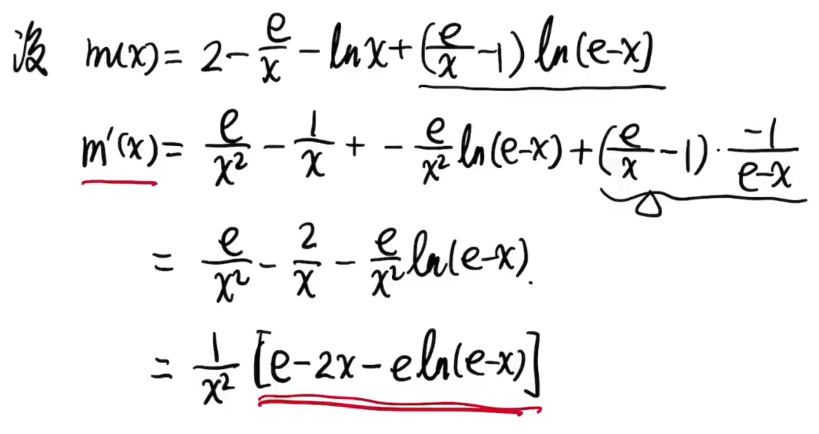 设 m(x) = 2 - e/x - ln x + (e/x - 1) ln(e-x)
m'(x) = e/x² - 1/x + - e/x² ln(e-x) + (e/x - 1) · -1/(e-x)
= e/x² - 2/x - e/x² ln(e-x).
= 1/x² [e - 2x - e ln(e-x)]